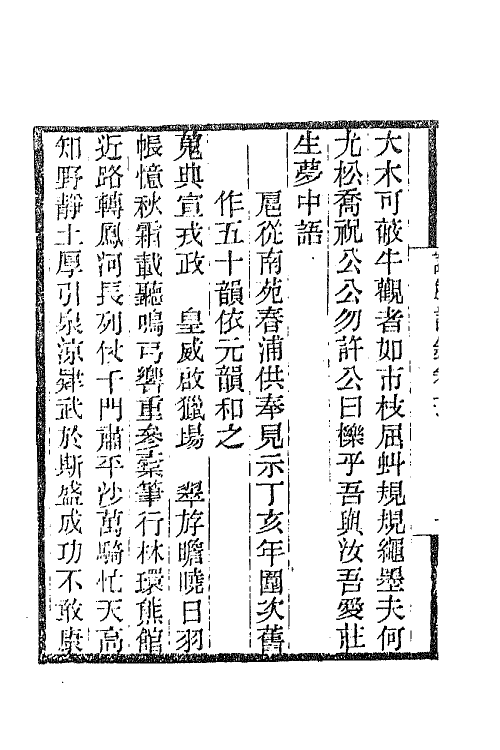 大木可蔽牛觀者如市枝屈虬規規繩墨夫何
尤松喬祝公公勿許公曰櫟乎吾與汝吾愛莊
生夢中語
扈從南苑春浦供奉見示丁亥年圍次舊
作五十韻依元韻和之
蒐典宣戎政 皇威啟獵場 翠斿瞻曉日羽
帳憶秋霜載聽鳴弓響重參橐筆行林環熊館
近路轉鳳河長列仗千門肅平沙萬騎忙天高
知野靜土厚引泉涼肄武於斯盛成功不敢康